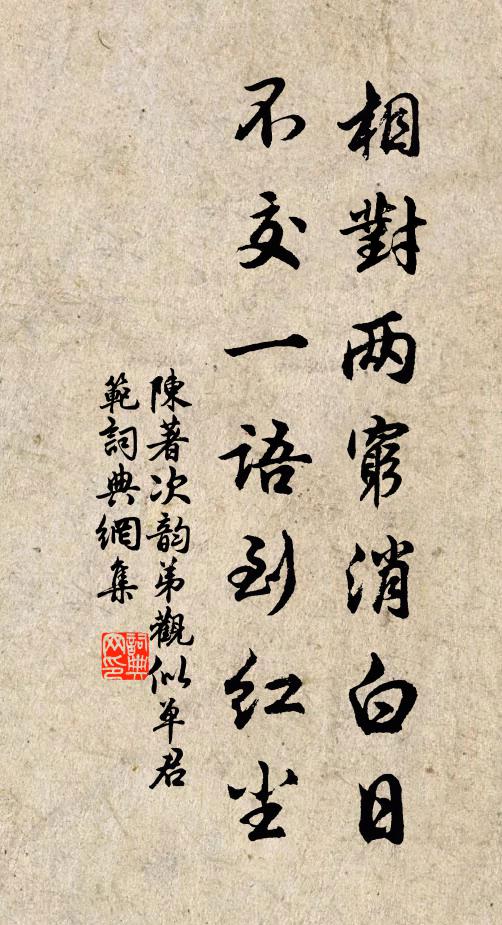 相對两窮消白日
不交一語到红尘
陳著次韵弟觀似单君
範詞典網集
詞典
网印